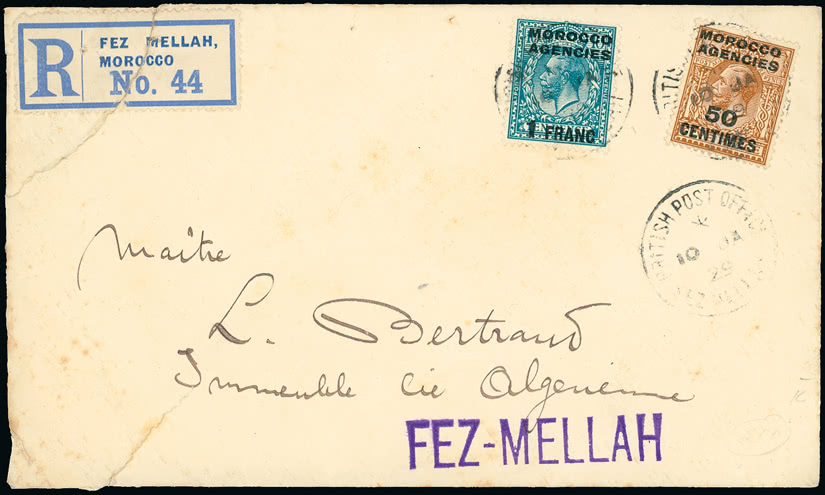 R
FEZ MELLAH,
MOROCCO
No. 44
MOROCCO
AGENCIES
1 FRANC
MOROCCO
AGENCIES
50
CENTIMES
BRITISH POST OFFICE
10 JA
29
FEZ MELLAH
Maître
L. Bertrand
Immeuble Cie Algerienne
FEZ-MELLAH